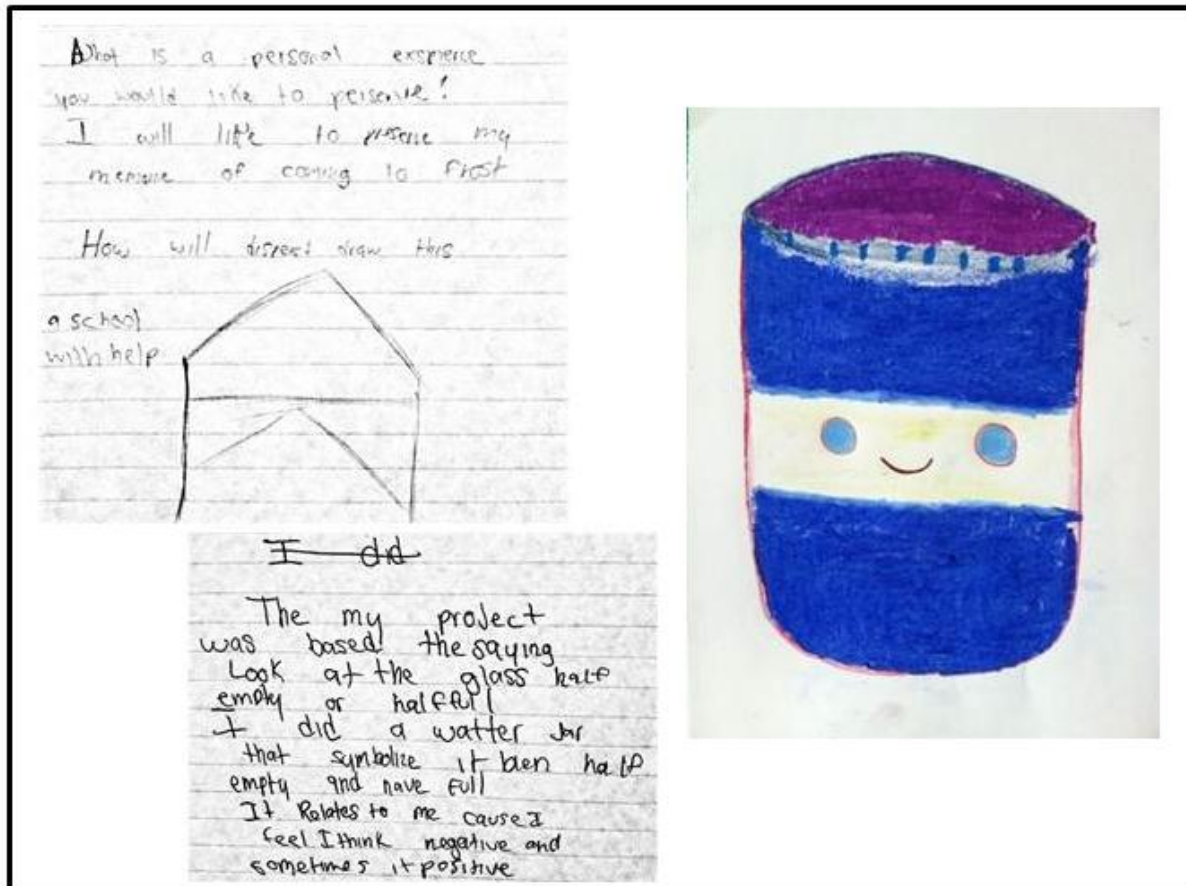 What is a personal exsperce
you would like to perserve!
I will like to preserve my
memorie of coming to Frost
How will disrect draw this
a school
with help
I did
The my project
was based the saying
Look at the glass half
empty or halffull
I did a watter Jar
that symbolize it ben half
empty and have full
It Relates to me cause I
feel I think negative and
sometimes it positive